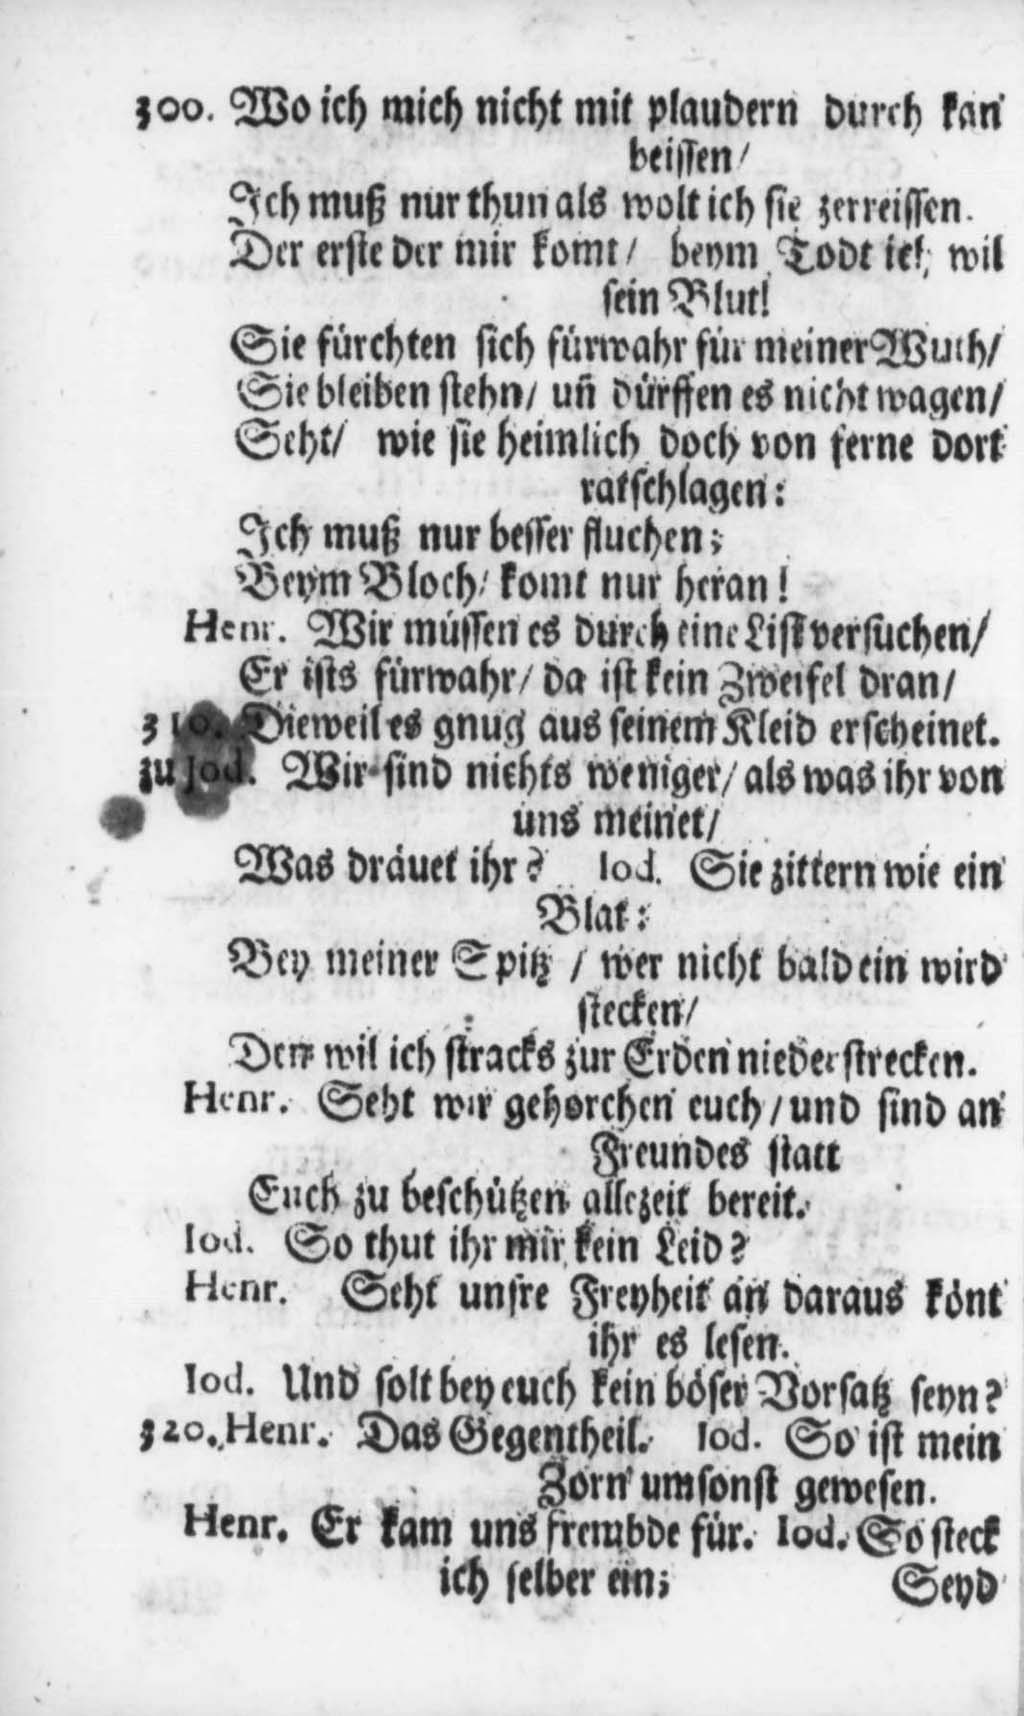 300. Wo ich mich nicht mit plaudern durch kan
beissen/
Ich muß nur thun als wolt ich sie zerreissen.
Der erste der mir komt/ beym Todt ich wil
sein Blut!
Sie fürchten sich fürwahr für meiner Wuth/
Sie bleiben stehn/ uñ dürffen es nicht wagen/
Seht/ wie sie heimlich doch von ferne dort
ratschlagen:
Ich muß nur besser fluchen;
Beym Bloch/ komt nur heran!
Henr. Wir müssen es durch eine List versuchen/
Er ists fürwahr/ da ist kein Zweifel dran/
310. Dieweil es gnug aus seinem Kleid erscheinet.
zu Jod. Wir sind nichts weniger/ als was ihr von
uns meinet/
Was dräuet ihr? Iod. Sie zittern wie ein
Blat:
Bey meiner Spitz / wer nicht bald ein wird
stecken/
Den wil ich stracks zur Erden niederstrecken.
Henr. Seht wir gehorchen euch/ und sind an
Freundes statt
Euch zu beschützen allezeit bereit.
Iod. So thut ihr mir kein Leid?
Henr. Seht unsre Freyheit an daraus könt
ihr es lesen.
Iod. Und solt bey euch kein böser Vorsatz seyn?
320. Henr. Das Gegentheil. Iod. So ist mein
Zorn umsonst gewesen.
Henr. Er kam uns frembde für. Iod. So steck
ich selber ein;
Seyd